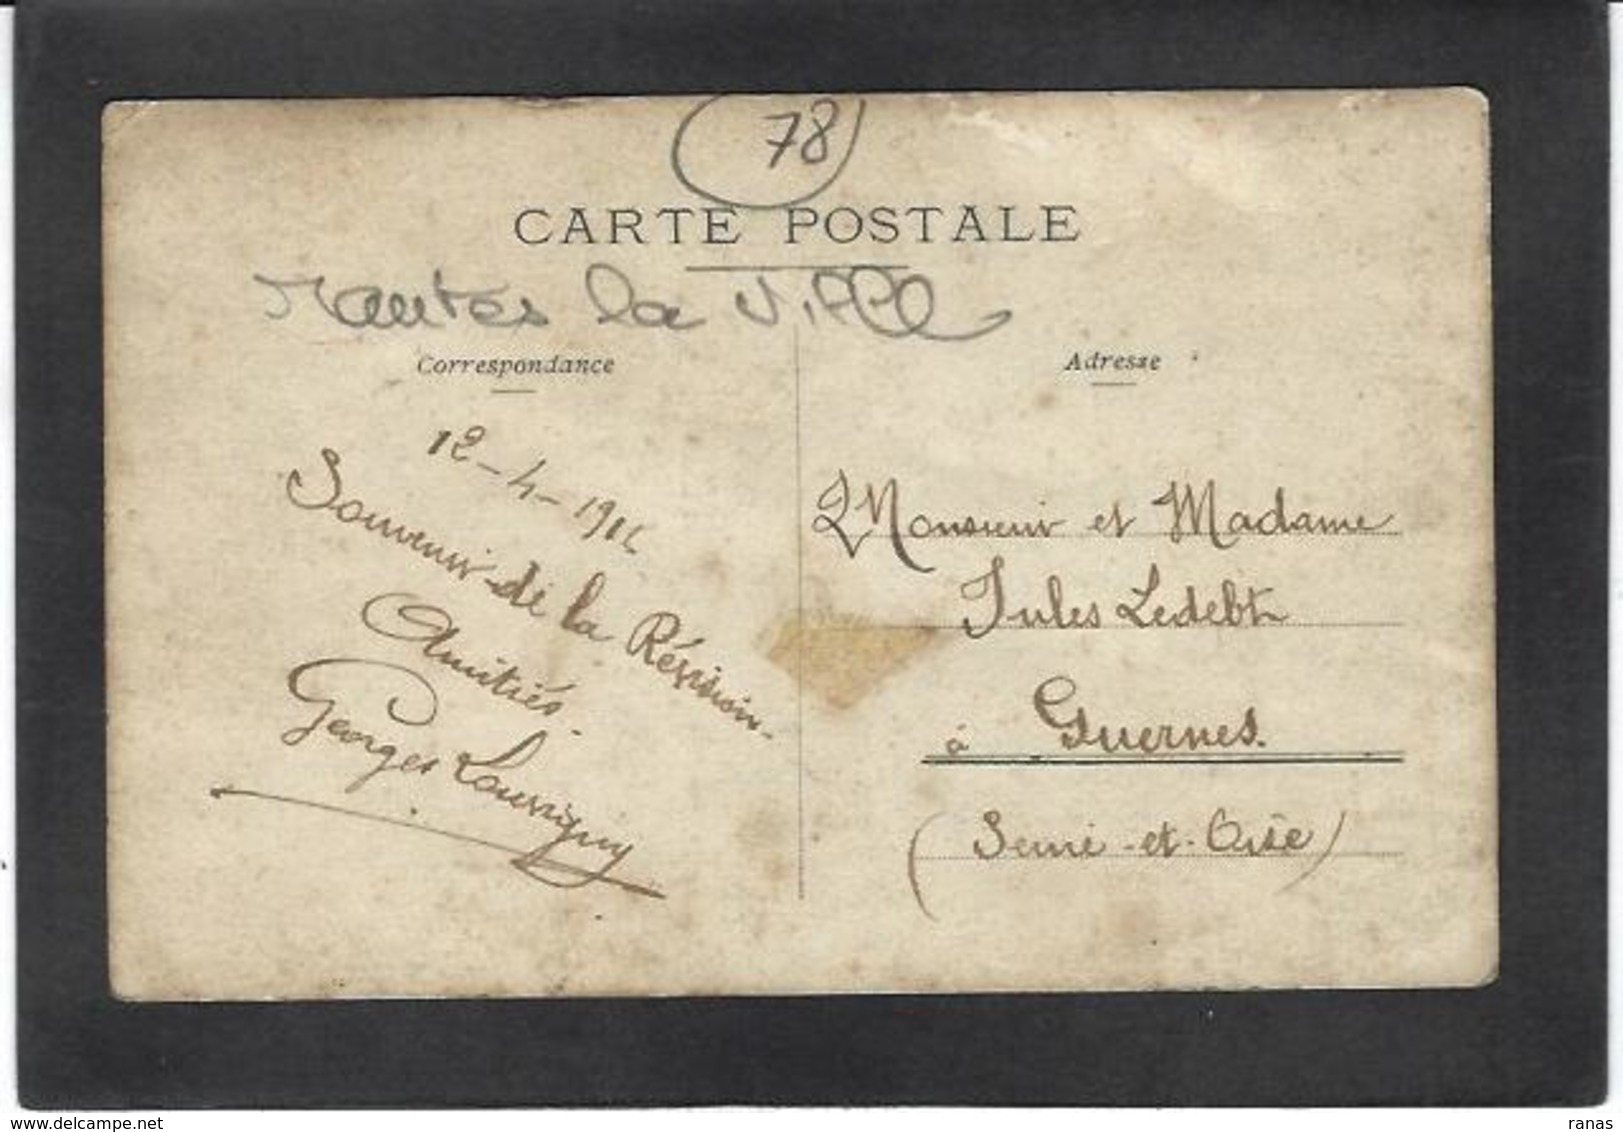 78
CARTE POSTALE
Mantes la Ville
Correspondance
12-4-1914
Souvenir de la Révision.
Amitiés.
Georges Louvigny
Adresse
Monsieur et Madame
Jules Ledebt
à Guernes.
(Seine-et-Oise)
delcampe.net
ranas